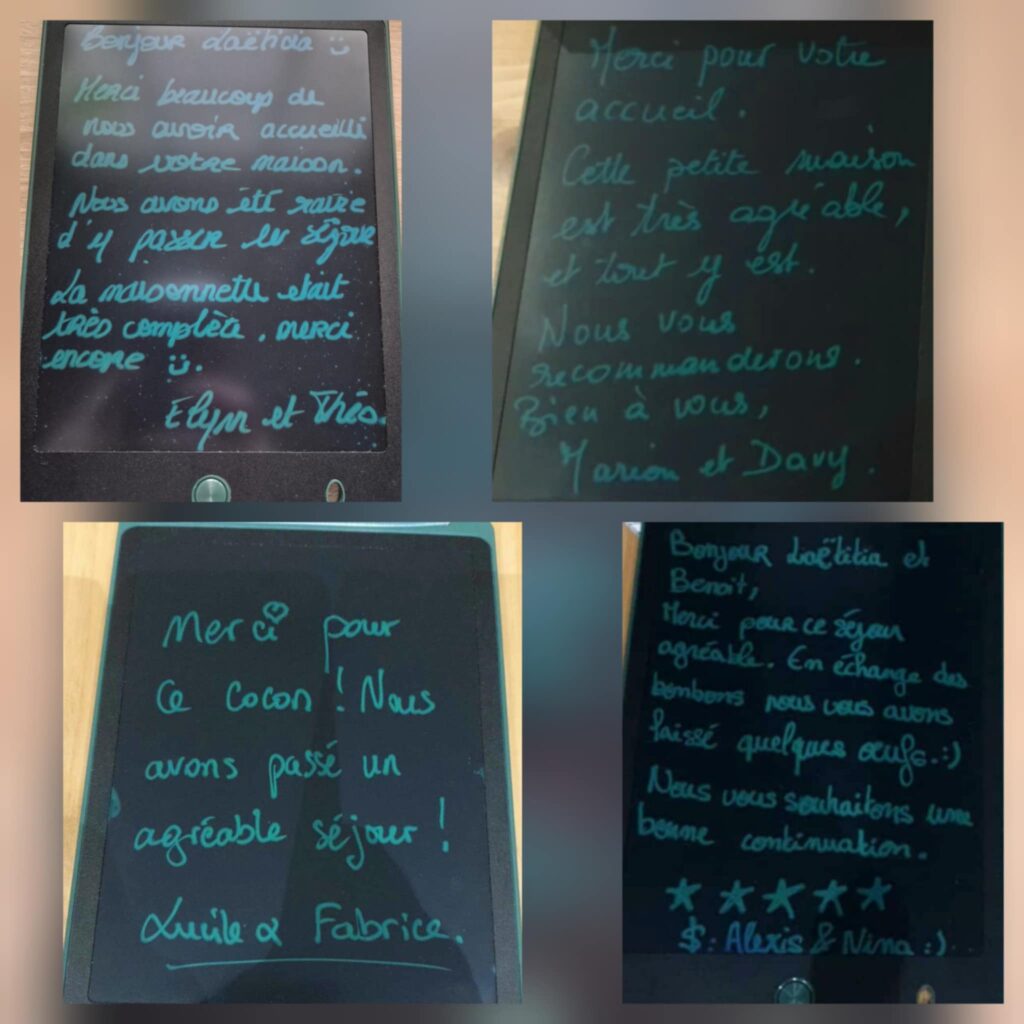 Bonjour Laëticia :)
Merci beaucoup de
nous avoir accueilli
dans votre maison.
Nous avons été ravie
d'y passer ce séjour
La maisonnette était
très complète. merci
encore :).
Elynn et Théo.
Merci pour votre
accueil.
Cette petite maison
est très agréable,
et tout y est.
Nous vous
recommanderons.
Bien à vous,
Marion et Davy.
Merci pour
ce cocon ! Nous
avons passé un
agréable séjour !
Lucile & Fabrice.
Bonjour Laëtitia et
Benoit,
Merci pour ce séjour
agréable. En échange des
bonbons nous vous avons
laissé quelques œufs. :)
Nous vous souhaitons une
bonne continuation.
★ ★ ★ ★ ★
$: Alexis & Nina :)